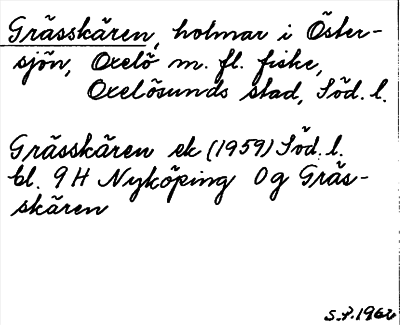 Grässkären, holmar i Öster-
sjön, Oxelö m. fl. fiske,
Oxelösunds stad, Söd. l.
Grässkären ek (1959) Söd. l.
bl. 9H Nyköping 0g Gräs-
skären
S.P. 1962